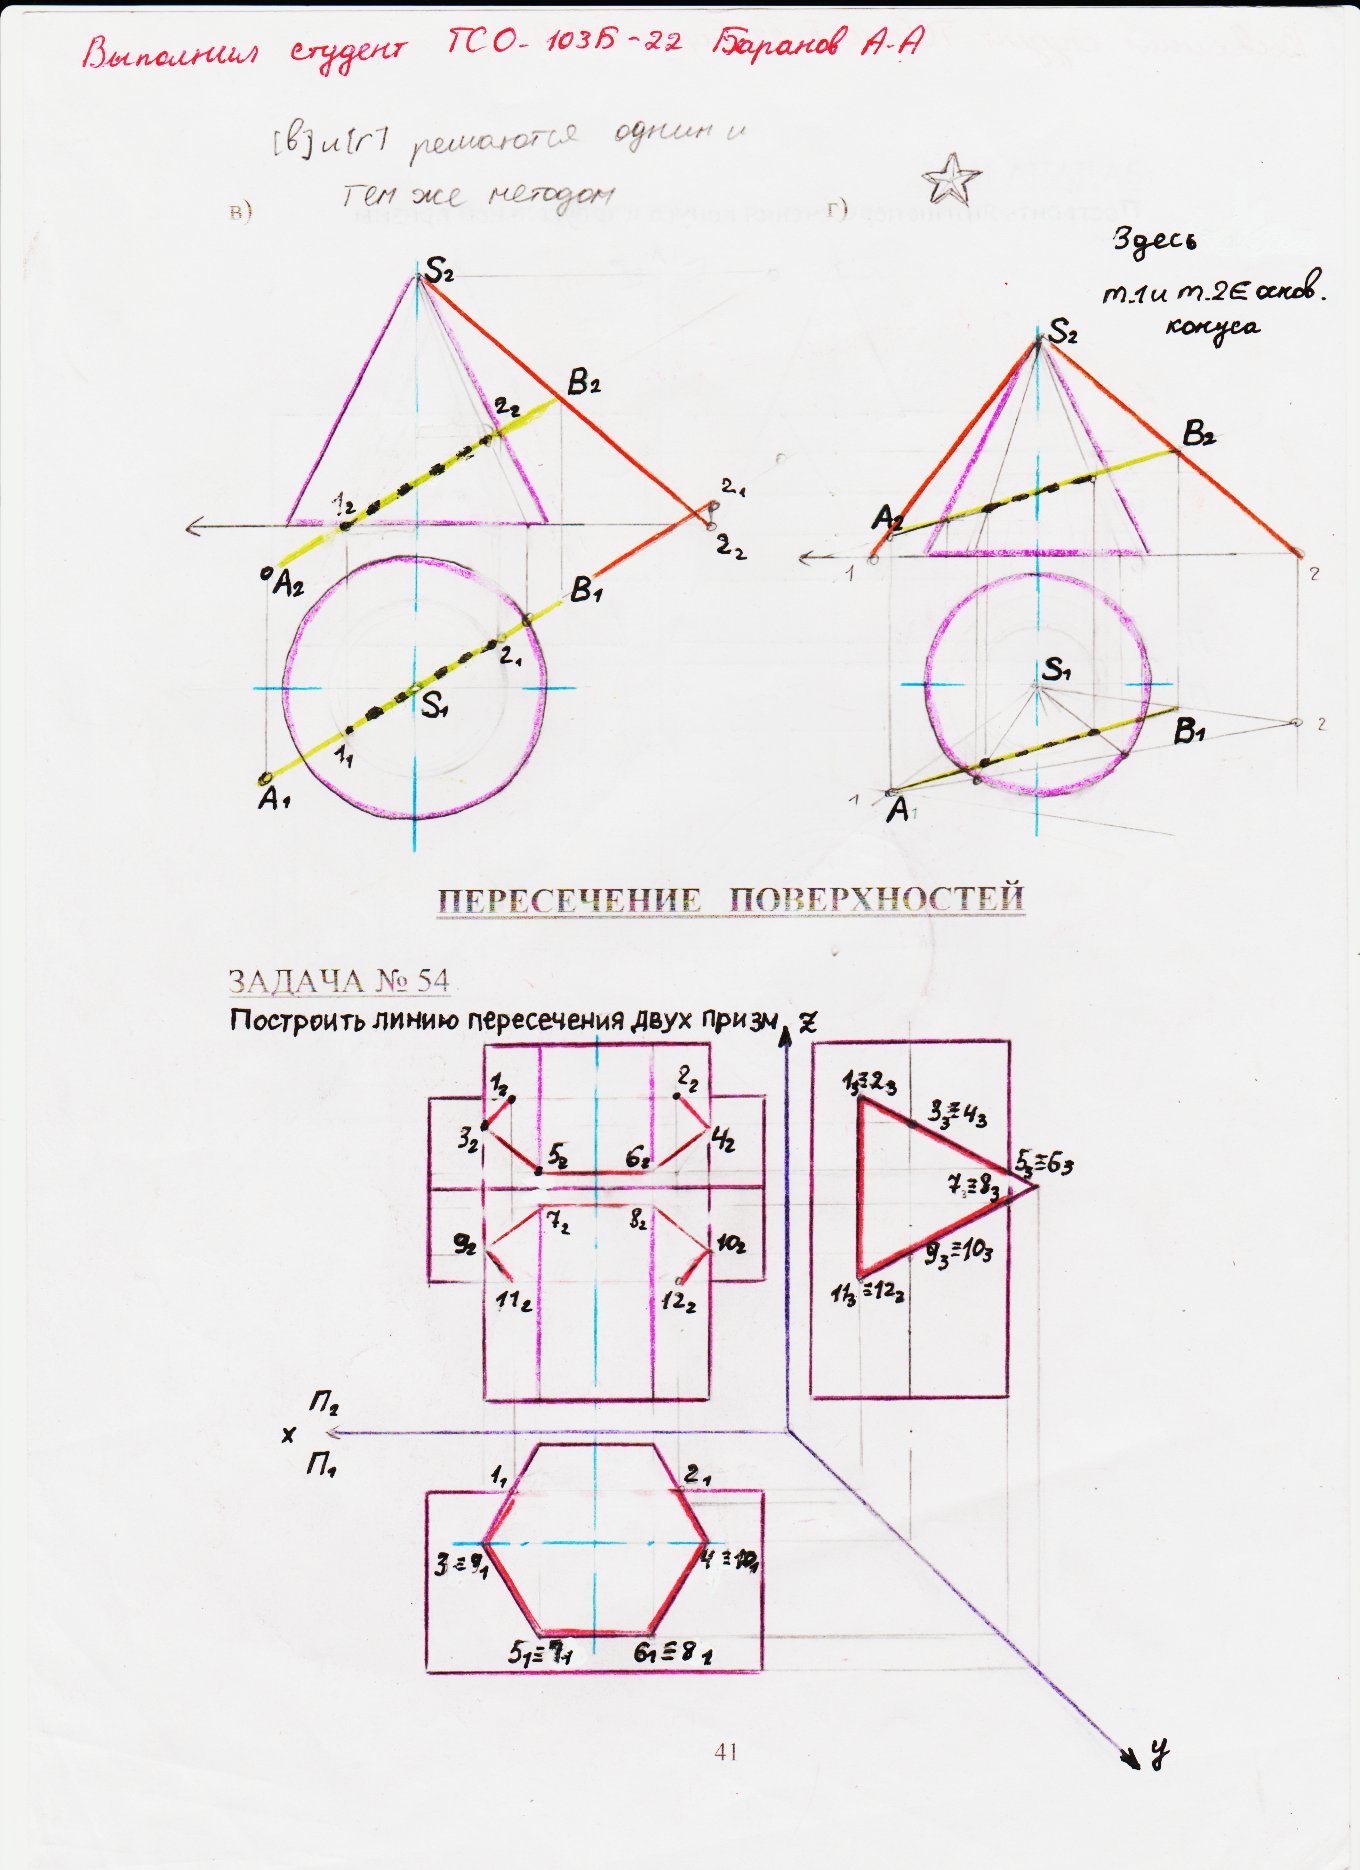 Выполнил студент ТСО-103Б-22 Баранов А.А
[в] и [г] решаются одним и
тем же методом
в)
г)
Здесь
т.1 и т.2 ∈ основ.
конуса
S₂
B₂
2₂
1₂
A₂
2₁
2₂
B₁
2₁
S₁
1₁
A₁
S₂
B₂
A₂
1
2
S₁
B₁
2
1
A₁
ПЕРЕСЕЧЕНИЕ ПОВЕРХНОСТЕЙ
ЗАДАЧА № 54
Построить линию пересечения двух призм
Z
1₂
2₂
3₂
4₂
5₂
6₂
7₂
8₂
9₂
10₂
11₂
12₂
1₃≡2₃
3₃≡4₃
5₃≡6₃
7₃≡8₃
9₃≡10₃
11₃≡12₂
П₂
x
П₁
1₁
2₁
3≡9₁
4≡10₁
5₁≡7₁
6₁≡8₁
y
41